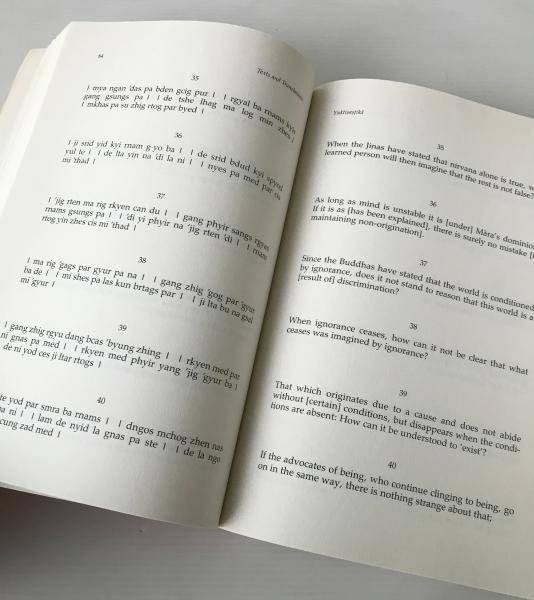 84
Texts and Translations
35
| mya ngan 'das pa bden gcig pur | | rgyal ba rnams kyis
gang gsungs pa | | de tshe lhag ma log min zhes |
| mkhas pa su zhig rtog par byed |
36
| ji srid yid kyi rnam g·yo ba | | de srid bdud kyi spyod
yul te | | de lta yin na 'di la ni | | nyes pa med par cis
mi 'thad |
37
| 'jig rten ma rig rkyen can du | | gang phyir sangs rgyas
rnams gsungs pa | | 'di yi phyir na 'jig rten 'di | | rnam
rtog yin zhes cis mi 'thad |
38
| ma rig 'gags par gyur pa na | | gang zhig 'gog par 'gyur
ba de | | mi shes pa las kun brtags par | | ji lta bu na gsal
mi 'gyur |
39
| gang zhig rgyu dang bcas 'byung zhing | | rkyen med par
ni gnas pa med | | rkyen med phyir yang 'jig 'gyur ba |
de ni yod ces ji ltar rtogs |
40
te yod par smra ba rnams | | dngos mchog zhen nas
pa ni | | lam de nyid la gnas pa ste | | de la ngo
cung zad med |
Yuktiṣaṣṭikā
35
When the Jinas have stated that nirvana alone is true, w
learned person will then imagine that the rest is not false?
36
As long as mind is unstable it is [under] Māra's dominio
If it is as [has been explained], there is surely no mistake [i
maintaining non-origination].
37
Since the Buddhas have stated that the world is conditioned
by ignorance, does it not stand to reason that this world is a
[result of] discrimination?
38
When ignorance ceases, how can it not be clear that what
ceases was imagined by ignorance?
39
That which originates due to a cause and does not abide
without [certain] conditions, but disappears when the condi-
tions are absent: How can it be understood to 'exist'?
40
If the advocates of being, who continue clinging to being, go
on in the same way, there is nothing strange about that;